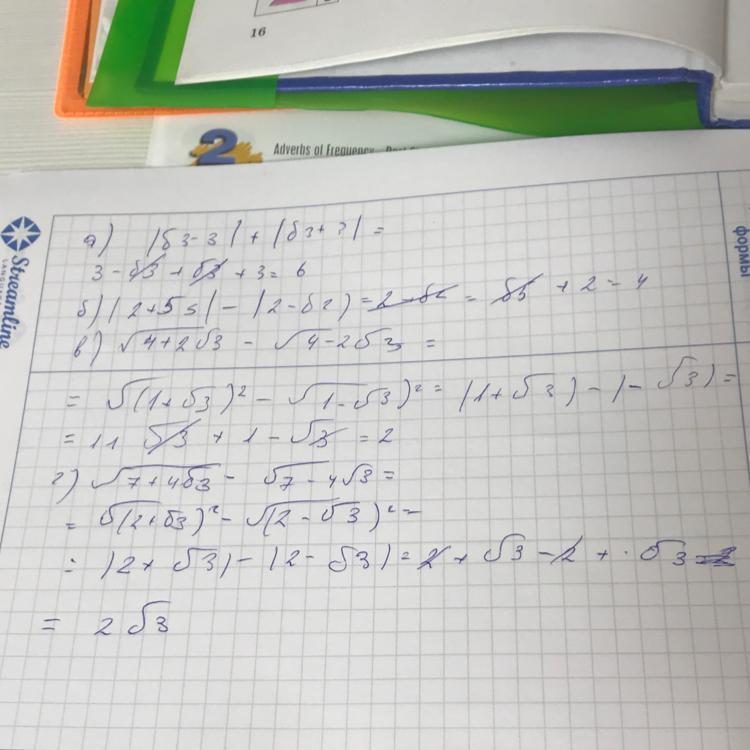 16
2 Adverbs of Frequency
Streamline
формы
а) |√3-3| + |√3+3| =
3-√3+√3+3=6
б) |2+√5| - |2-√5| = 2-√5 = √5 + 2 = 4
в) √4+2√3 - √4-2√3 =
= √(1+√3)² - √(1-√3)² = |1+√3) - 1-√3) =
= 11 √3 + 1-√3 = 2
г) √7+4√3 - √7-4√3 =
= √(2+√3)² - √(2-√3)² =
= |2+√3) - |2-√3) = 2 + √3 - 2 + √3
= 2√3